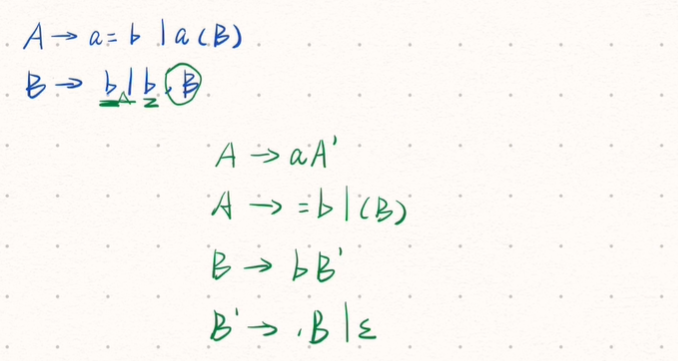 A → a = b | a (B)
B → b | b , B
A → aA'
A → = b | (B)
B → bB'
B' → , B | ε